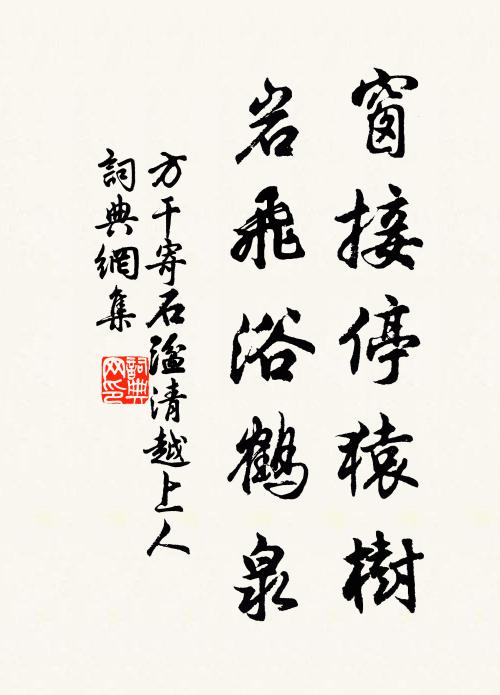 窗接停猿樹
岩飛浴鶴泉
方干寄石湓清越上人
詞典網集
詞典网印